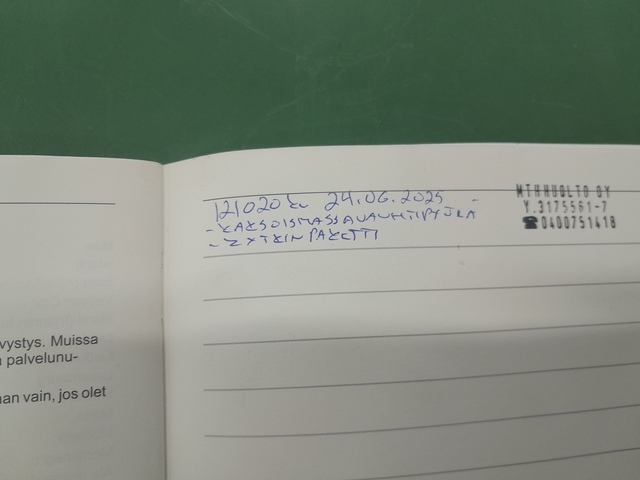 vystys. Muissa
palvelunu-
an vain, jos olet
121020 km 24.06.2025
- KAKSOISMASSAVAUHTIPYÖRÄ
- KYTKINPAKETTI
MTHHUOLTO OY
Y.3175561-7
☎0400751418